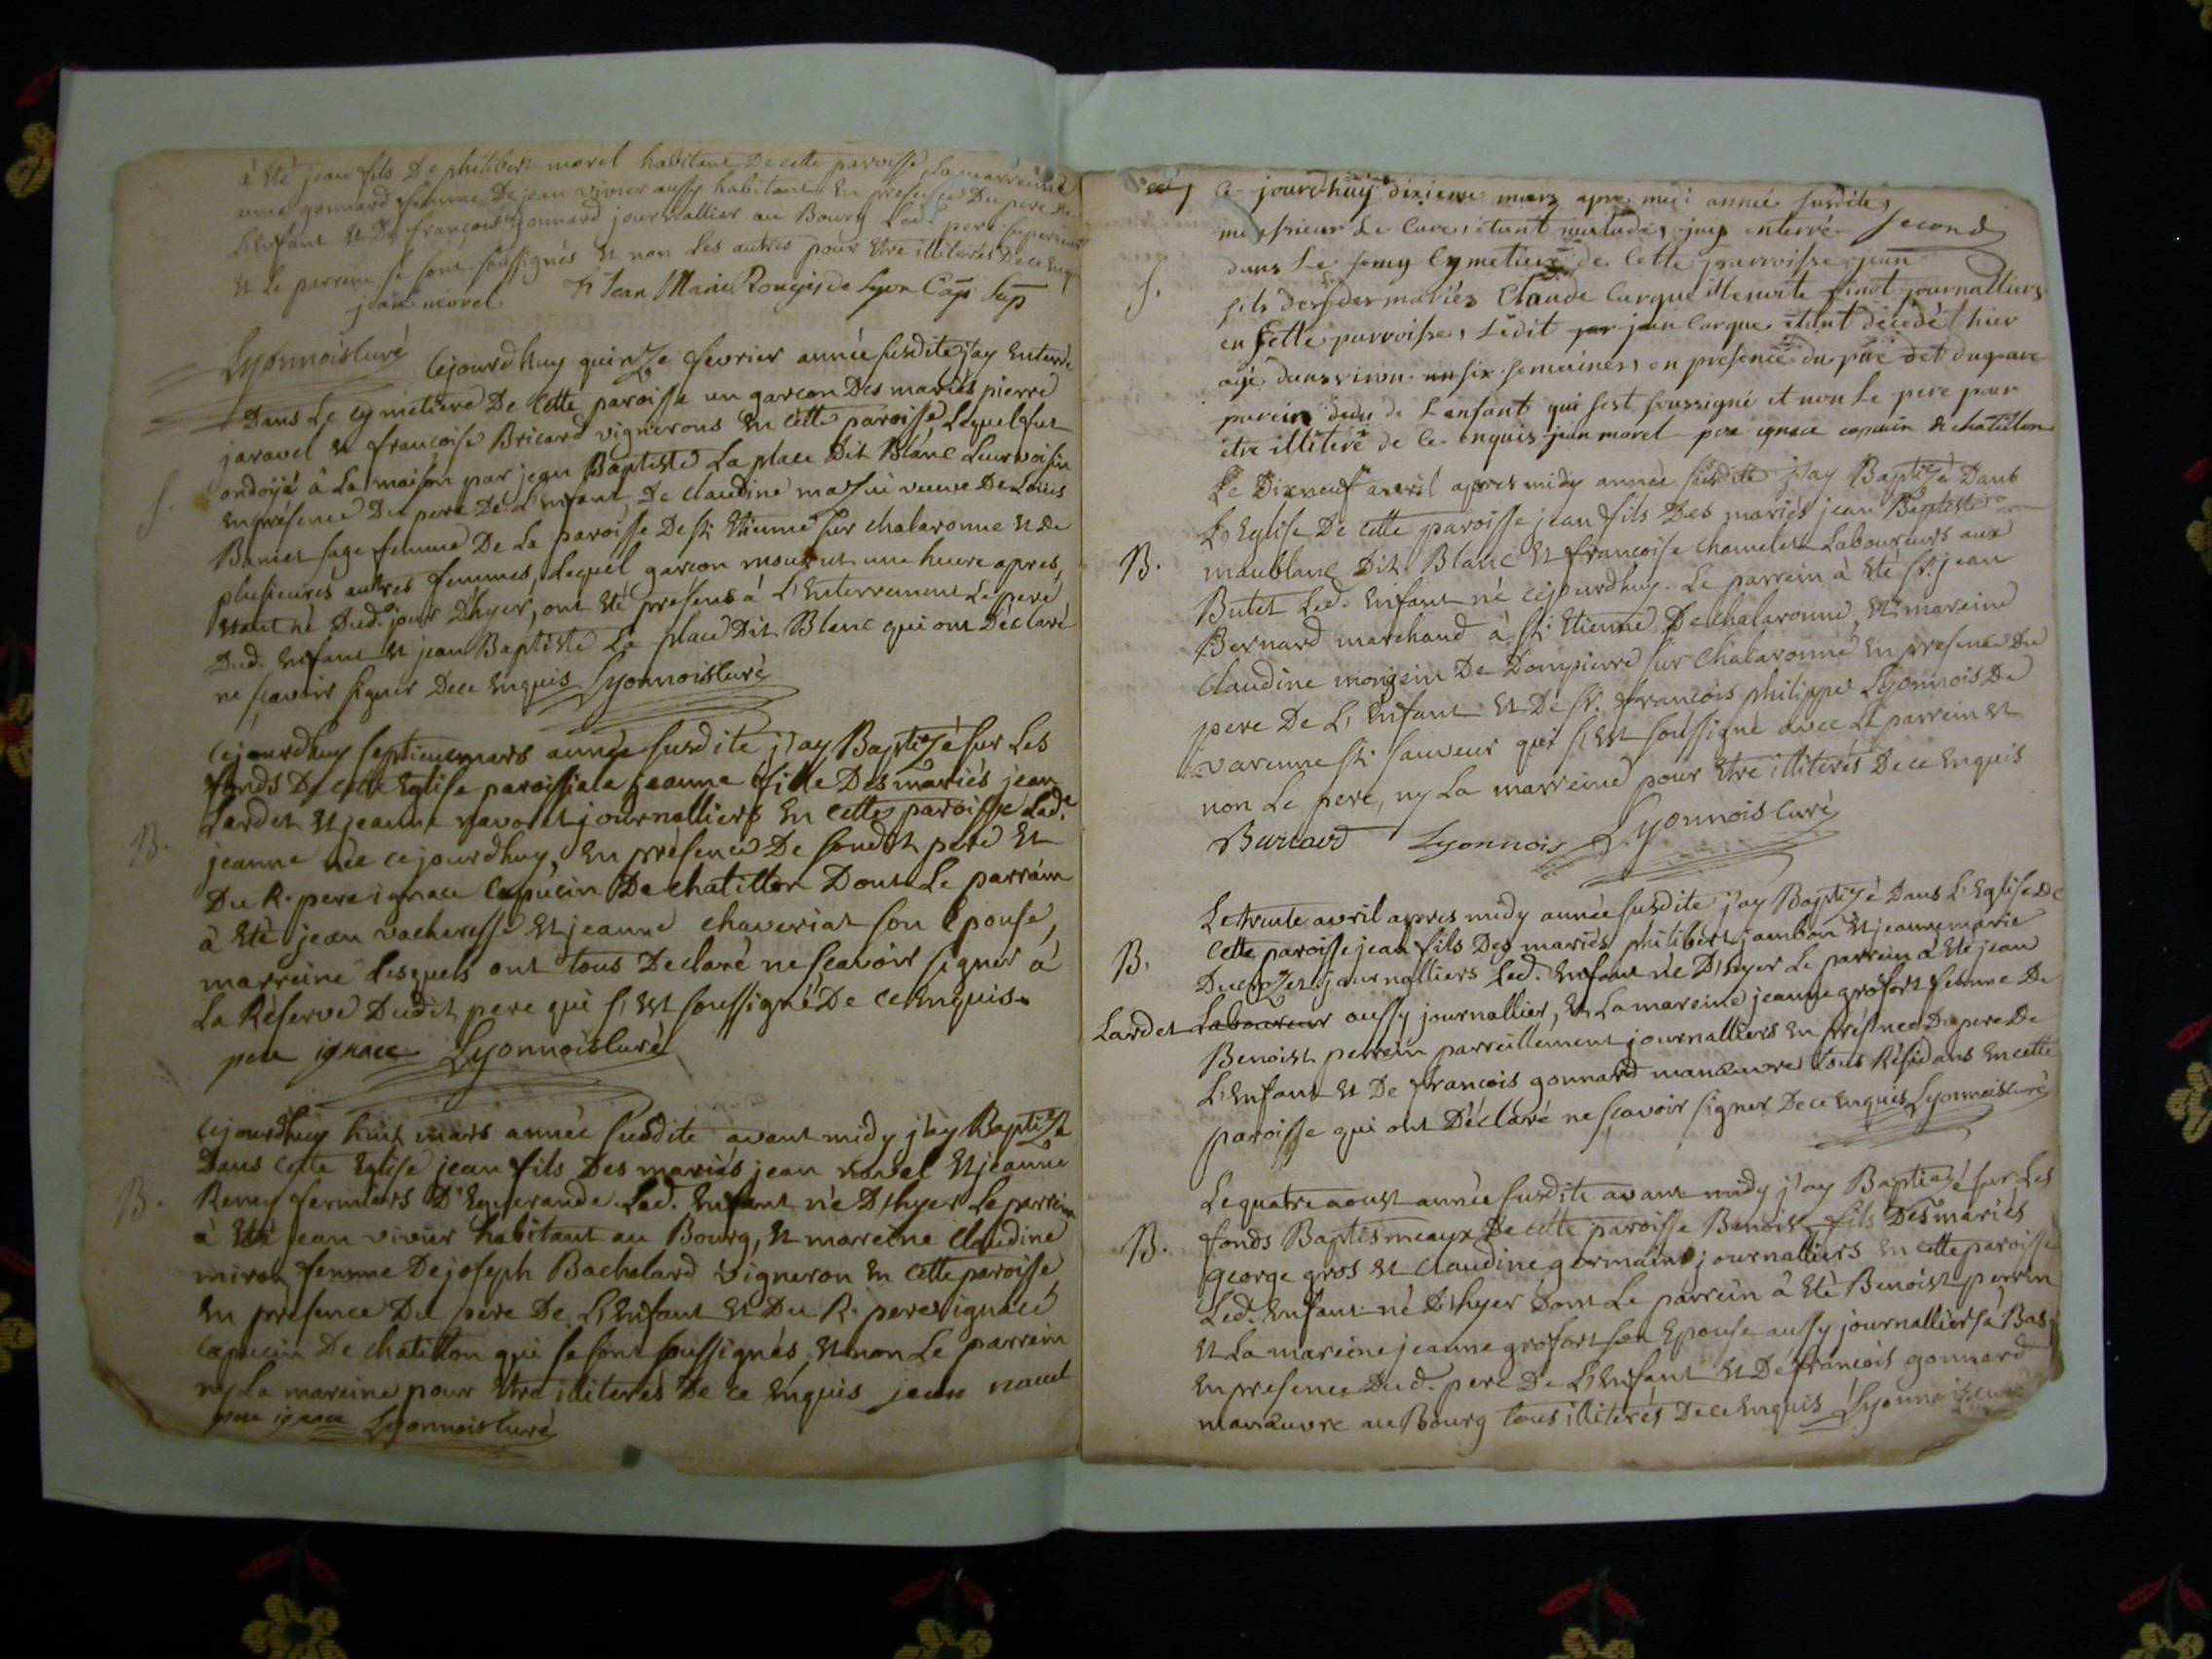 à Eté jean fils De philibert morel habitant De cette paroisse, La marreine
anne gonnard femme De jean vivier aussy habitant En presence Du pere De
L'Enfant Et De françois gonnard journallier au Bourg Led. pere superieur
Et Le parrein se sont soussignés Et non Les autres pour Etre illiterés De ce Enquis
jean morel fr Jean Marie Rougis de Lyon Cap Sup
Lyonnois curé
Cejourdhuy quinze fevrier année susdite j'ay Enterré
Dans Le Cymetiere De Cette paroisse un garcon Des mariés pierre
jaravel Et françoise Bricard vignerons En cette paroisse Lequel fut
ondoÿé à La maison par jean Baptiste La place Dit Blanc Leur voisin
S.
En présence Du pere De L'Enfant, De claudine veuve De Louis
Bamet sage femme De La paroisse De St. Etienne sur chalaronne Et De
plusieures autres femmes, Lequel garcon mourut une heure apres,
Etant né Dud. jour D'hyer, ont Eté présens à L'Enterrement Le pere
Dud. Enfant Et jean Baptiste La place Dit Blanc qui ont Déclaré
ne scavoir signer De ce Enquis Lyonnois curé
Cejourdhuy septieme mars année susdite j'ay Baptizé sur Les
fonds De cette Eglise paroissiale jeanne fille Des mariés jean
Lardet Et jeanne journalliers En cette paroisse Lad.e
B.
jeanne née cejourdhuy, En présence De son dit pere Et
Du R. pere ignace Capucin De chatillon Dont Le parrain
à Eté jean vacheresse Et jeanne chaveriat son Epouse,
marreine Lesquels ont tous Declaré ne scavoir signer à
La Réserve Dudit pere qui s'Est soussigné De ce Enquis.
pere ignace Lyonnois curé
Cejourdhuy huit mars année susdite avant midy j'ay Baptizé
Dans cette Eglise jean fils Des mariés jean Et jeanne
B.
Reney fermiers D'Eguerande. Led. Enfant né D'hyer Le parrein
à Eté jean vivier habitant au Bourg, Et marreine Claudine
miron femme De joseph Bachelard vigneron En cette paroisse
En présence Du pere De L'Enfant Et Du R. pere ignace
Capucin De chatillon qui se sont soussignés, Et non Le parrein
ny La mareine pour Etre illiterés De ce Enquis jean
pere ignace Lyonnois curé
Ce jourdhuy dixieme mars apre midi année susdite,
monsieur Le Cure, étant malade, jay enterré second
dans Le Cymetiere de Cette parroisse jean
S.
fils des mariés Claude Carque pinot journalliers
en Cette parroisse, Ledit par jean Carque étant décédé hier
agé danviron un six semaines, en presence du pere et du
parein dudu de L'enfant qui sest soussigné et non Le pere pour
etre illiteré de Ce enquis jean morel pere ignace capucin de chatillon
Le Dixneuf avril apres midy année susdite j'ay Baptizé Dans
L'Eglise De Cette paroisse jean fils Des mariés jean Baptiste
B.
maublanc Dit Blanc Et francoise chamelet Laboureurs aux
Butet Led. Enfant né cejourdhuy. Le parrein à Eté Sr. jean
Bernard marchand à St. Etienne De chalaronne, Et mareine
Claudine mongein De Dompierre sur Chalaronne En presence Du
pere De L'Enfant Et De Sr. françois philippe Lyonnois De
varenne St. sauveur qui s'Est soussigné avec Le parrein Et
non Le pere, ny La marreine pour Etre illiterés De ce Enquis
Bernard Lyonnois Lyonnois curé
Le trente avril apres midy année susdite j'ay Baptizé Dans L'Eglise De
B.
Cette paroisse jean fils Des mariés philibert jambon Et jeanne marie
Ducrozet journalliers Led. Enfant né D'hyer Le parrein à Eté jean
Lardet Laboureur aussy journallier, Et La mareine jeanne grosfort femme De
Benoist perrein parreillement journalliers En présence Du pere De
L'Enfant Et De francois gonnard manœuvre tous Résidans En cette
paroisse qui ont Déclaré ne scavoir signer De ce Enquis Lyonnois curé
Le quatre aoust année susdite avant midy j'ay Baptizé sur Les
fonds Baptismeaux De cette paroisse Benoist fils Des mariés
B.
george gros Et Claudine germain journalliers En cette paroisse
Led. Enfant né D'hyer dont Le parrein à Eté Benoist perrin
Et La mareine jeanne grosfort son Epouse aussy journalliers à Bas
En presence Dud. pere De L'Enfant Et De francois gonnard
manœuvre au Bourg tous illiterés De ce Enquis Lyonnois curé